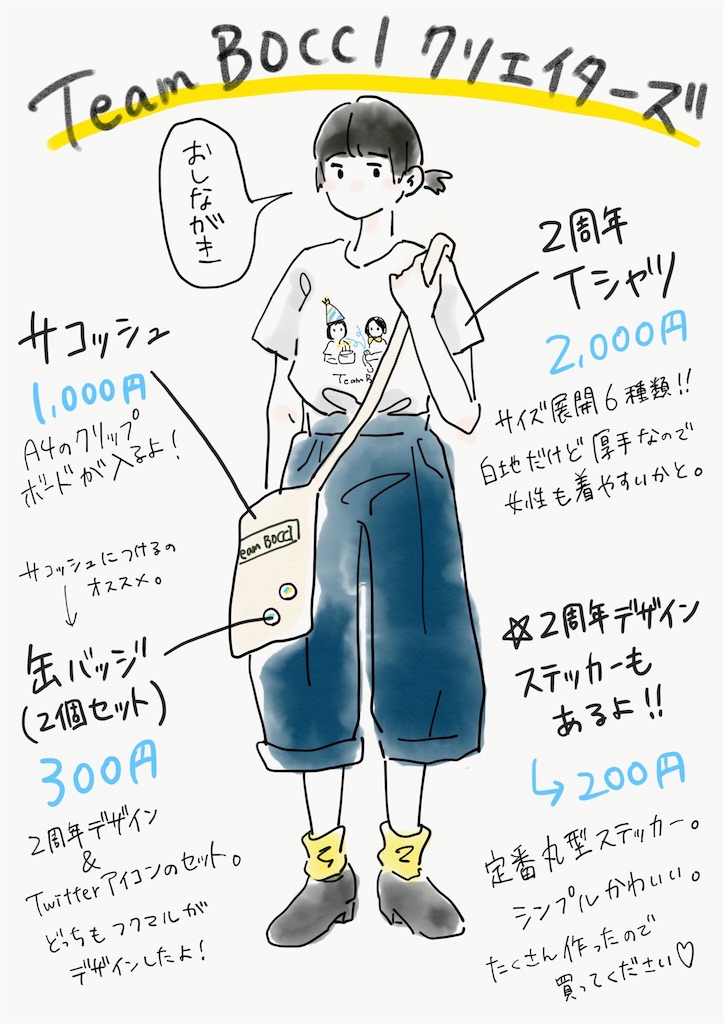 Team BOCCI クリエイターズ
おしながき
2周年
Tシャツ
2,000円
サイズ展開6種類!!
白地だけど厚手なので
女性も着やすいかと。
サコッシュ
1,000円
A4のクリップ
ボードが入るよ!
Team B
eam BOCCI
サコッシュにつけるの
オススメ。
缶バッジ
(2個セット)
300円
2周年デザイン
&
Twitterアイコンのセット。
どっちもフクマルが
デザインしたよ!
☆2周年デザイン
ステッカーも
あるよ!!
↳200円
定番丸型ステッカー。
シンプルかわいい。
たくさん作ったので
買ってください♡